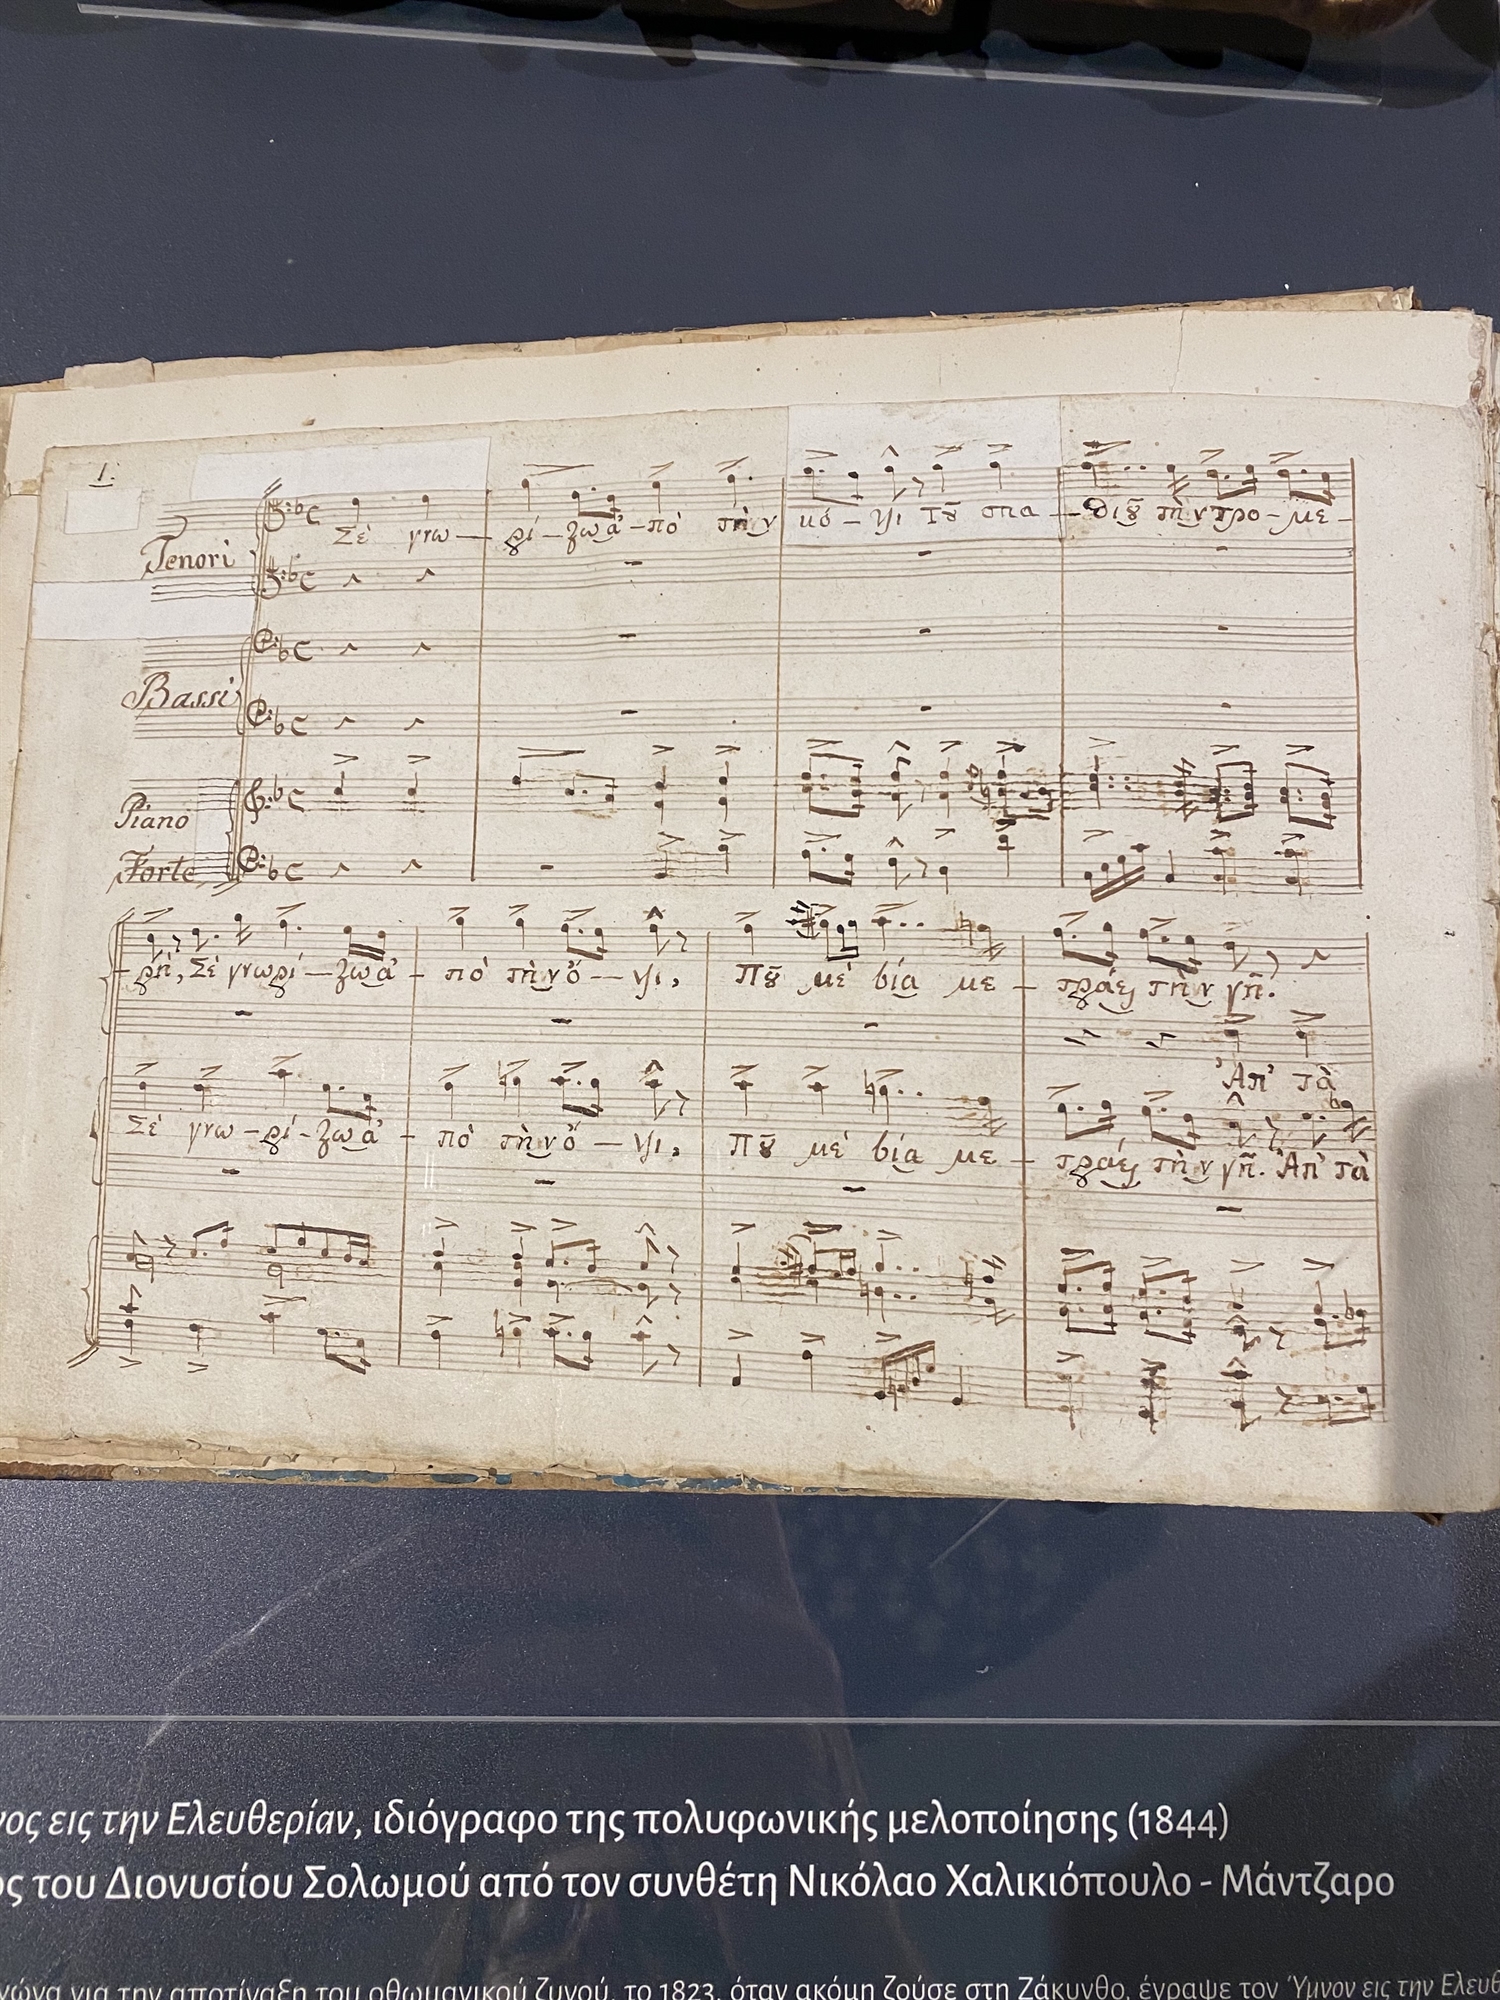 1.
Tenori
Σὲ γνω — ρί — ζω ἀ — πὸ τὴν κό — ψι Τȣ͂ σπα — θιȣ͂ τὴν τρο — με —
Bassi
Piano
Forte
ρὴ, Σὲ γνωρί — ζω ἀ — πὸ τὴν ὄ — ψι, Πȣ͂ μὲ βία με — τράει τὴν γῆ.
Ἀπ' τὰ
Σὲ γνω — ρί — ζω ἀ — πὸ τὴν ὄ — ψι, Πȣ͂ μὲ βία με — τράει τὴν γῆ. Ἀπ' τὰ
νος εις την Ελευθερίαν, ιδιόγραφο της πολυφωνικής μελοποίησης (1844)
ος του Διονυσίου Σολωμού από τον συνθέτη Νικόλαο Χαλικιόπουλο - Μάντζαρο
γώνα για την αποτίναξη του οθωμανικού ζυγού, το 1823, όταν ακόμη ζούσε στη Ζάκυνθο, έγραψε τον Ύμνον εις την Ελευθ